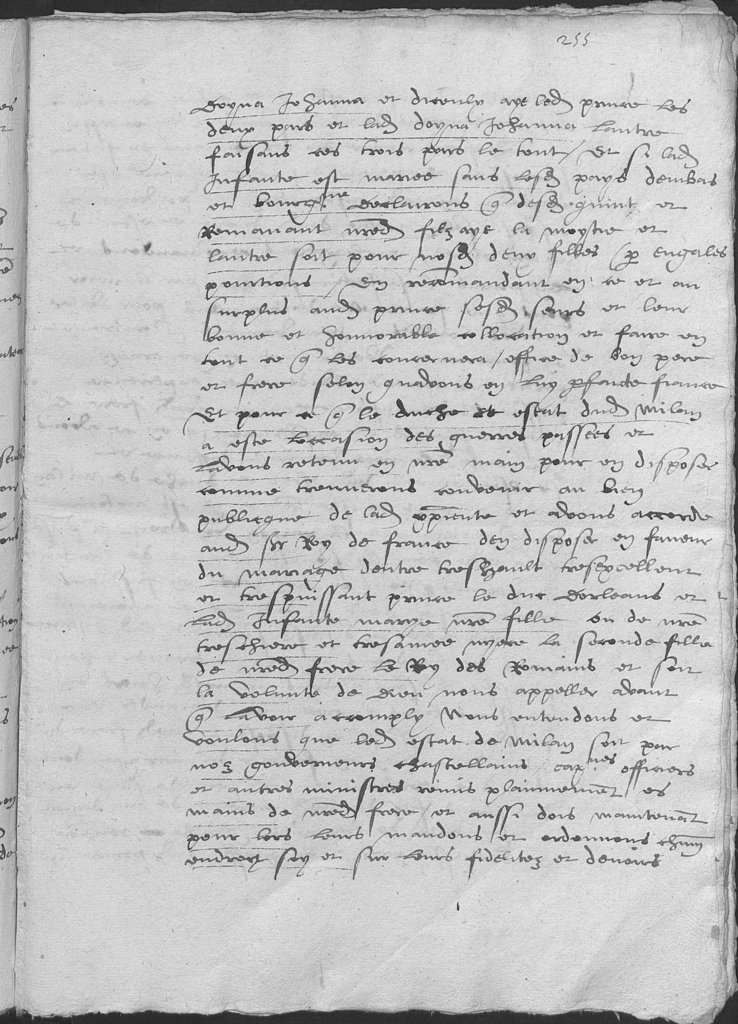 255
doyna Johanna et diceulx aye led prince les
deux pars et lad doyna Johanna lautre
faisans ces trois pars le tout / Et si lad
Infante est mariee sans lesd pays dembas
et bourgne declairons q desd quint et
Remanant nred filz aye la moytie et
lautre soit pour nosd deux filles p engales
pourtions / En recomandant en ce et au
surplus aud prince sesd seurs et leur
bonne et honnorable collocation et faire en
tout ce q les concernera / office de bon pere
et frere selon quadvons en luy pfaicte fiance
Et pour ce q le duche et estat dud Milan
a este loccasion des guerres passees et
Lavons retenu en nre main pour en disposer
comme treuverons convenir au bien
publicque de lad xpiente et advons accorde
aud sr Roy de france den disposer en faveur
du mariage dentre treshault tresexcellent
et trespuissant prince le duc dorleans et
Lad Infante marye nre fille ou de nre
treschiere et tresamee nyece la seconde fille
de nred frere le Roy des Romains et soit
la volunte de dieu nous appeller avant
q lavoir accomply Nous entendons et
voulons que led estat de Milan soit par
noz gouverneurs chastellains capnes officiers
et autres ministres remis plainnement es
mains de nred frere / et aussi dois maintenant
pour lors leurs mandons et ordonnons chun
endroit soy et sur leurs fidelitez et devoirs